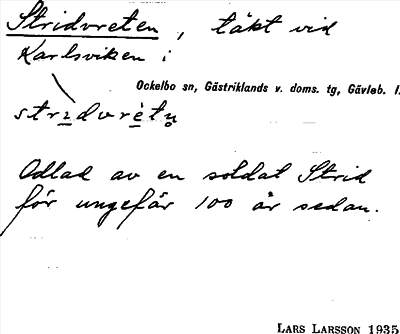 Stridvreten, täkt vid
Karlsviken i
Ockelbo sn, Gästriklands v. doms. tg, Gävleb. l.
strìdvrètn̥
Odlad av en soldat Strid
för ungefär 100 år sedan.
LARS LARSSON 1935